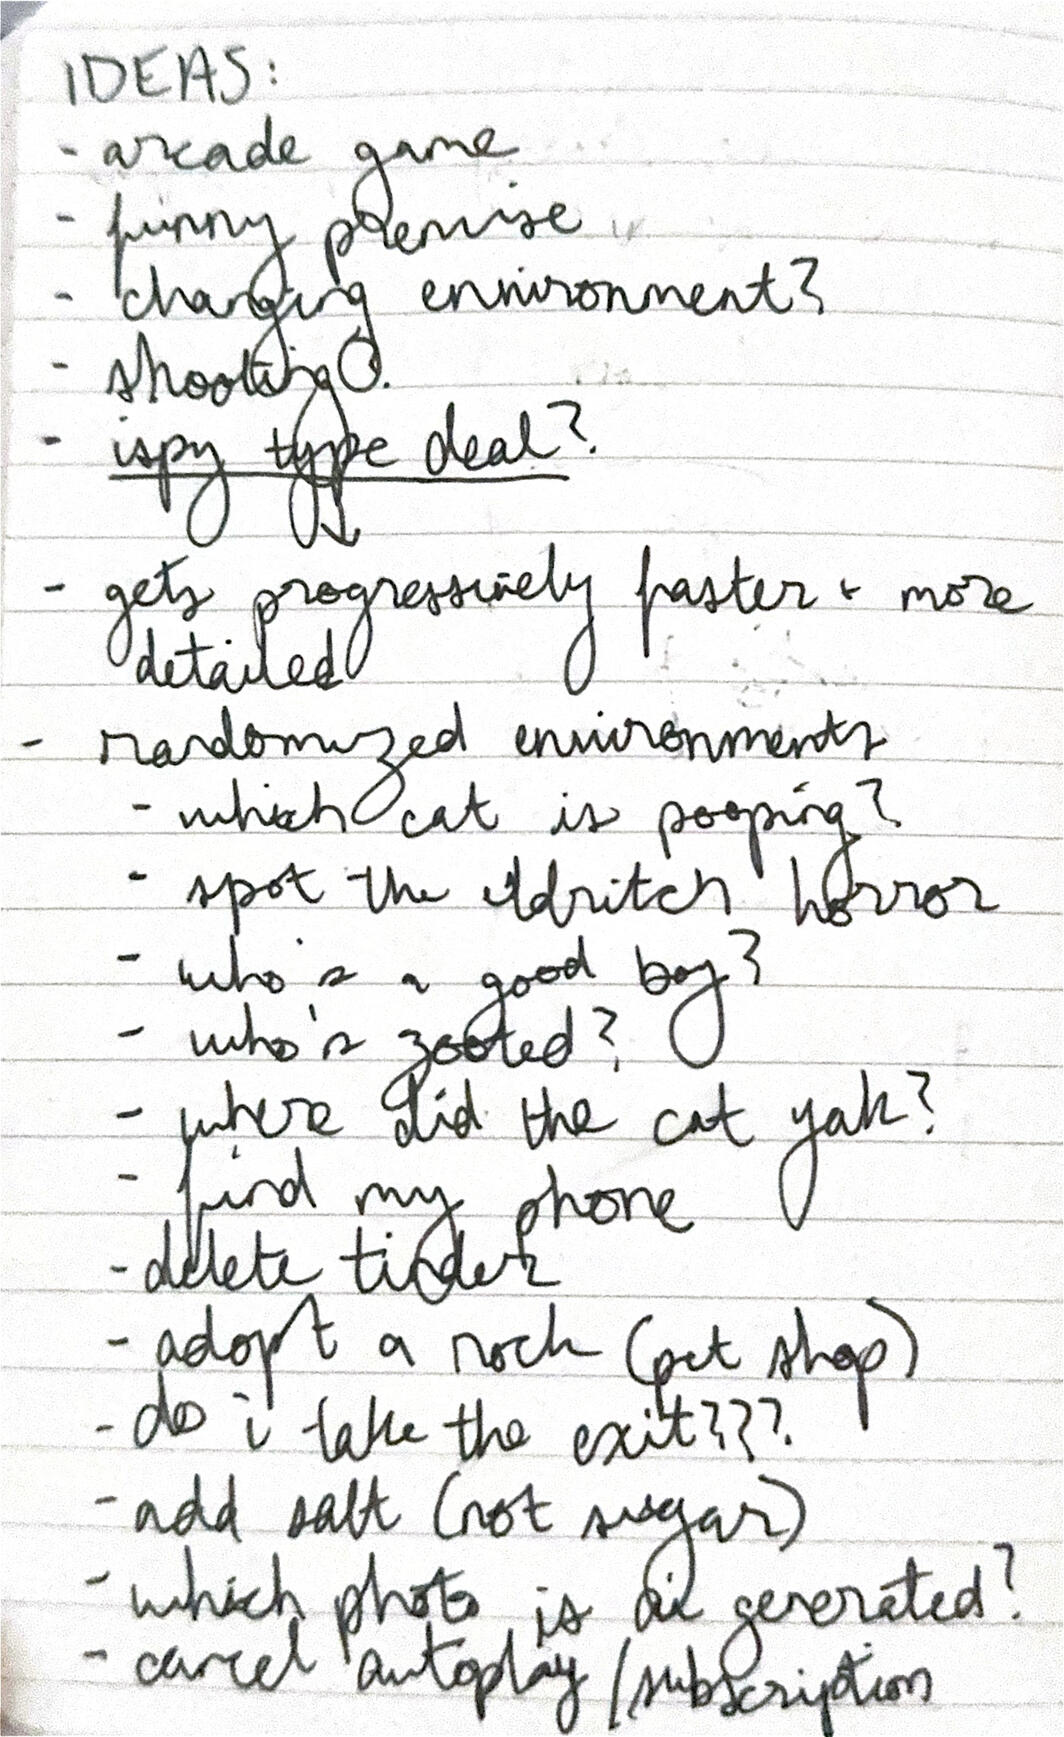 IDEAS:
- arcade game
- funny premise
- changing environment?
- shooting
- ispy type deal?
- gets progressively faster + more
detailed
- randomized environments
- which cat is pooping?
- spot the eldritch horror
- who's a good boy?
- who's zooted?
- where did the cat yak?
- find my phone
- delete tinder
- adopt a rock (pet shop)
- do i take the exit???
- add salt (not sugar)
- which photo is ai generated?
- cancel autoplay / subscription